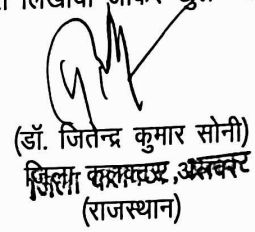 (डॉ. जितेन्द्र कुमार सोनी)
जिला कलक्टर, अलवर
(राजस्थान)